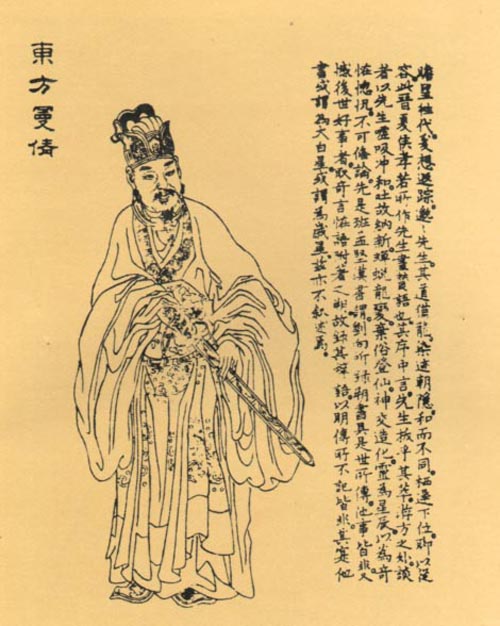 東方曼倩
瞻望往代爰想遐踪邈邈先生其道猶龍染迹朝隱和而不同栖遲下位聊以從
容此晉夏侯孝若所作先生畫贊語也其序中言先生拔乎其萃游方之外談
者以先生噓吸冲和吐故納新蟬蛻龍變棄俗登仙神交造化靈為星辰以為奇
怪惚怳不可備論先是班孟堅漢書謂劉向所錄朔書具是世所傳他事皆非又
憾後世好事者取奇言怪語附著之朔故錄其辭語以明傳所不記皆非其實他
書或謂為大白星或謂為歲星茲亦不叙述焉